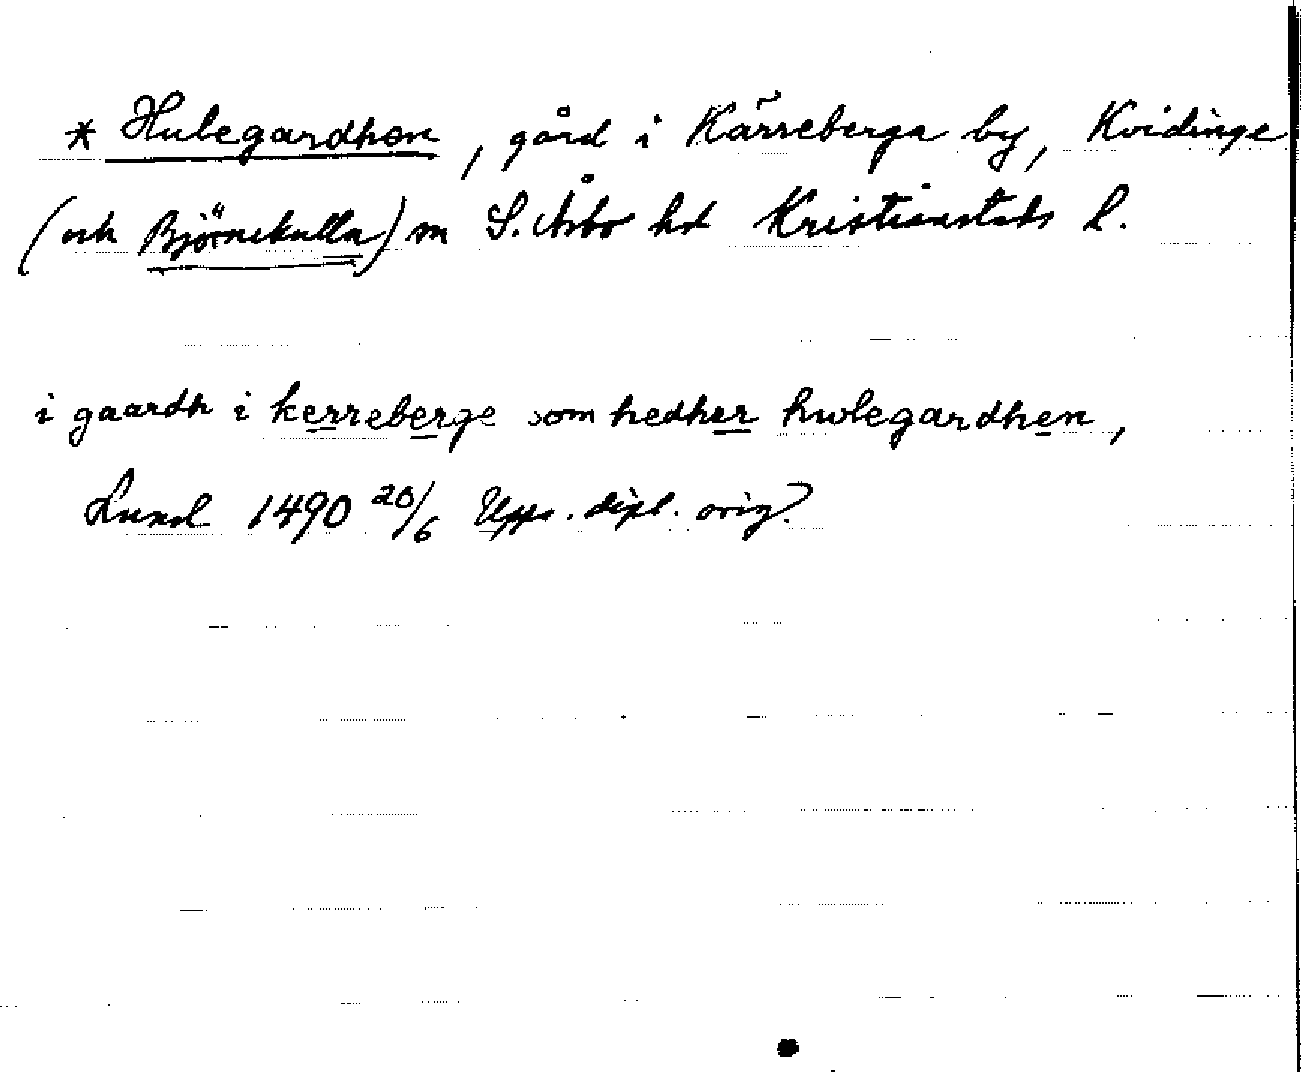 * Hulegardhen, gård i Kärreberga by, Kvidinge
(och Björnekulla) sn S. Åsbo hd Kristianstads l.
i gaardh i kerreberge som hedher hwlegardhen,
Lund 1490 20/6 Upps. dipl. orig.